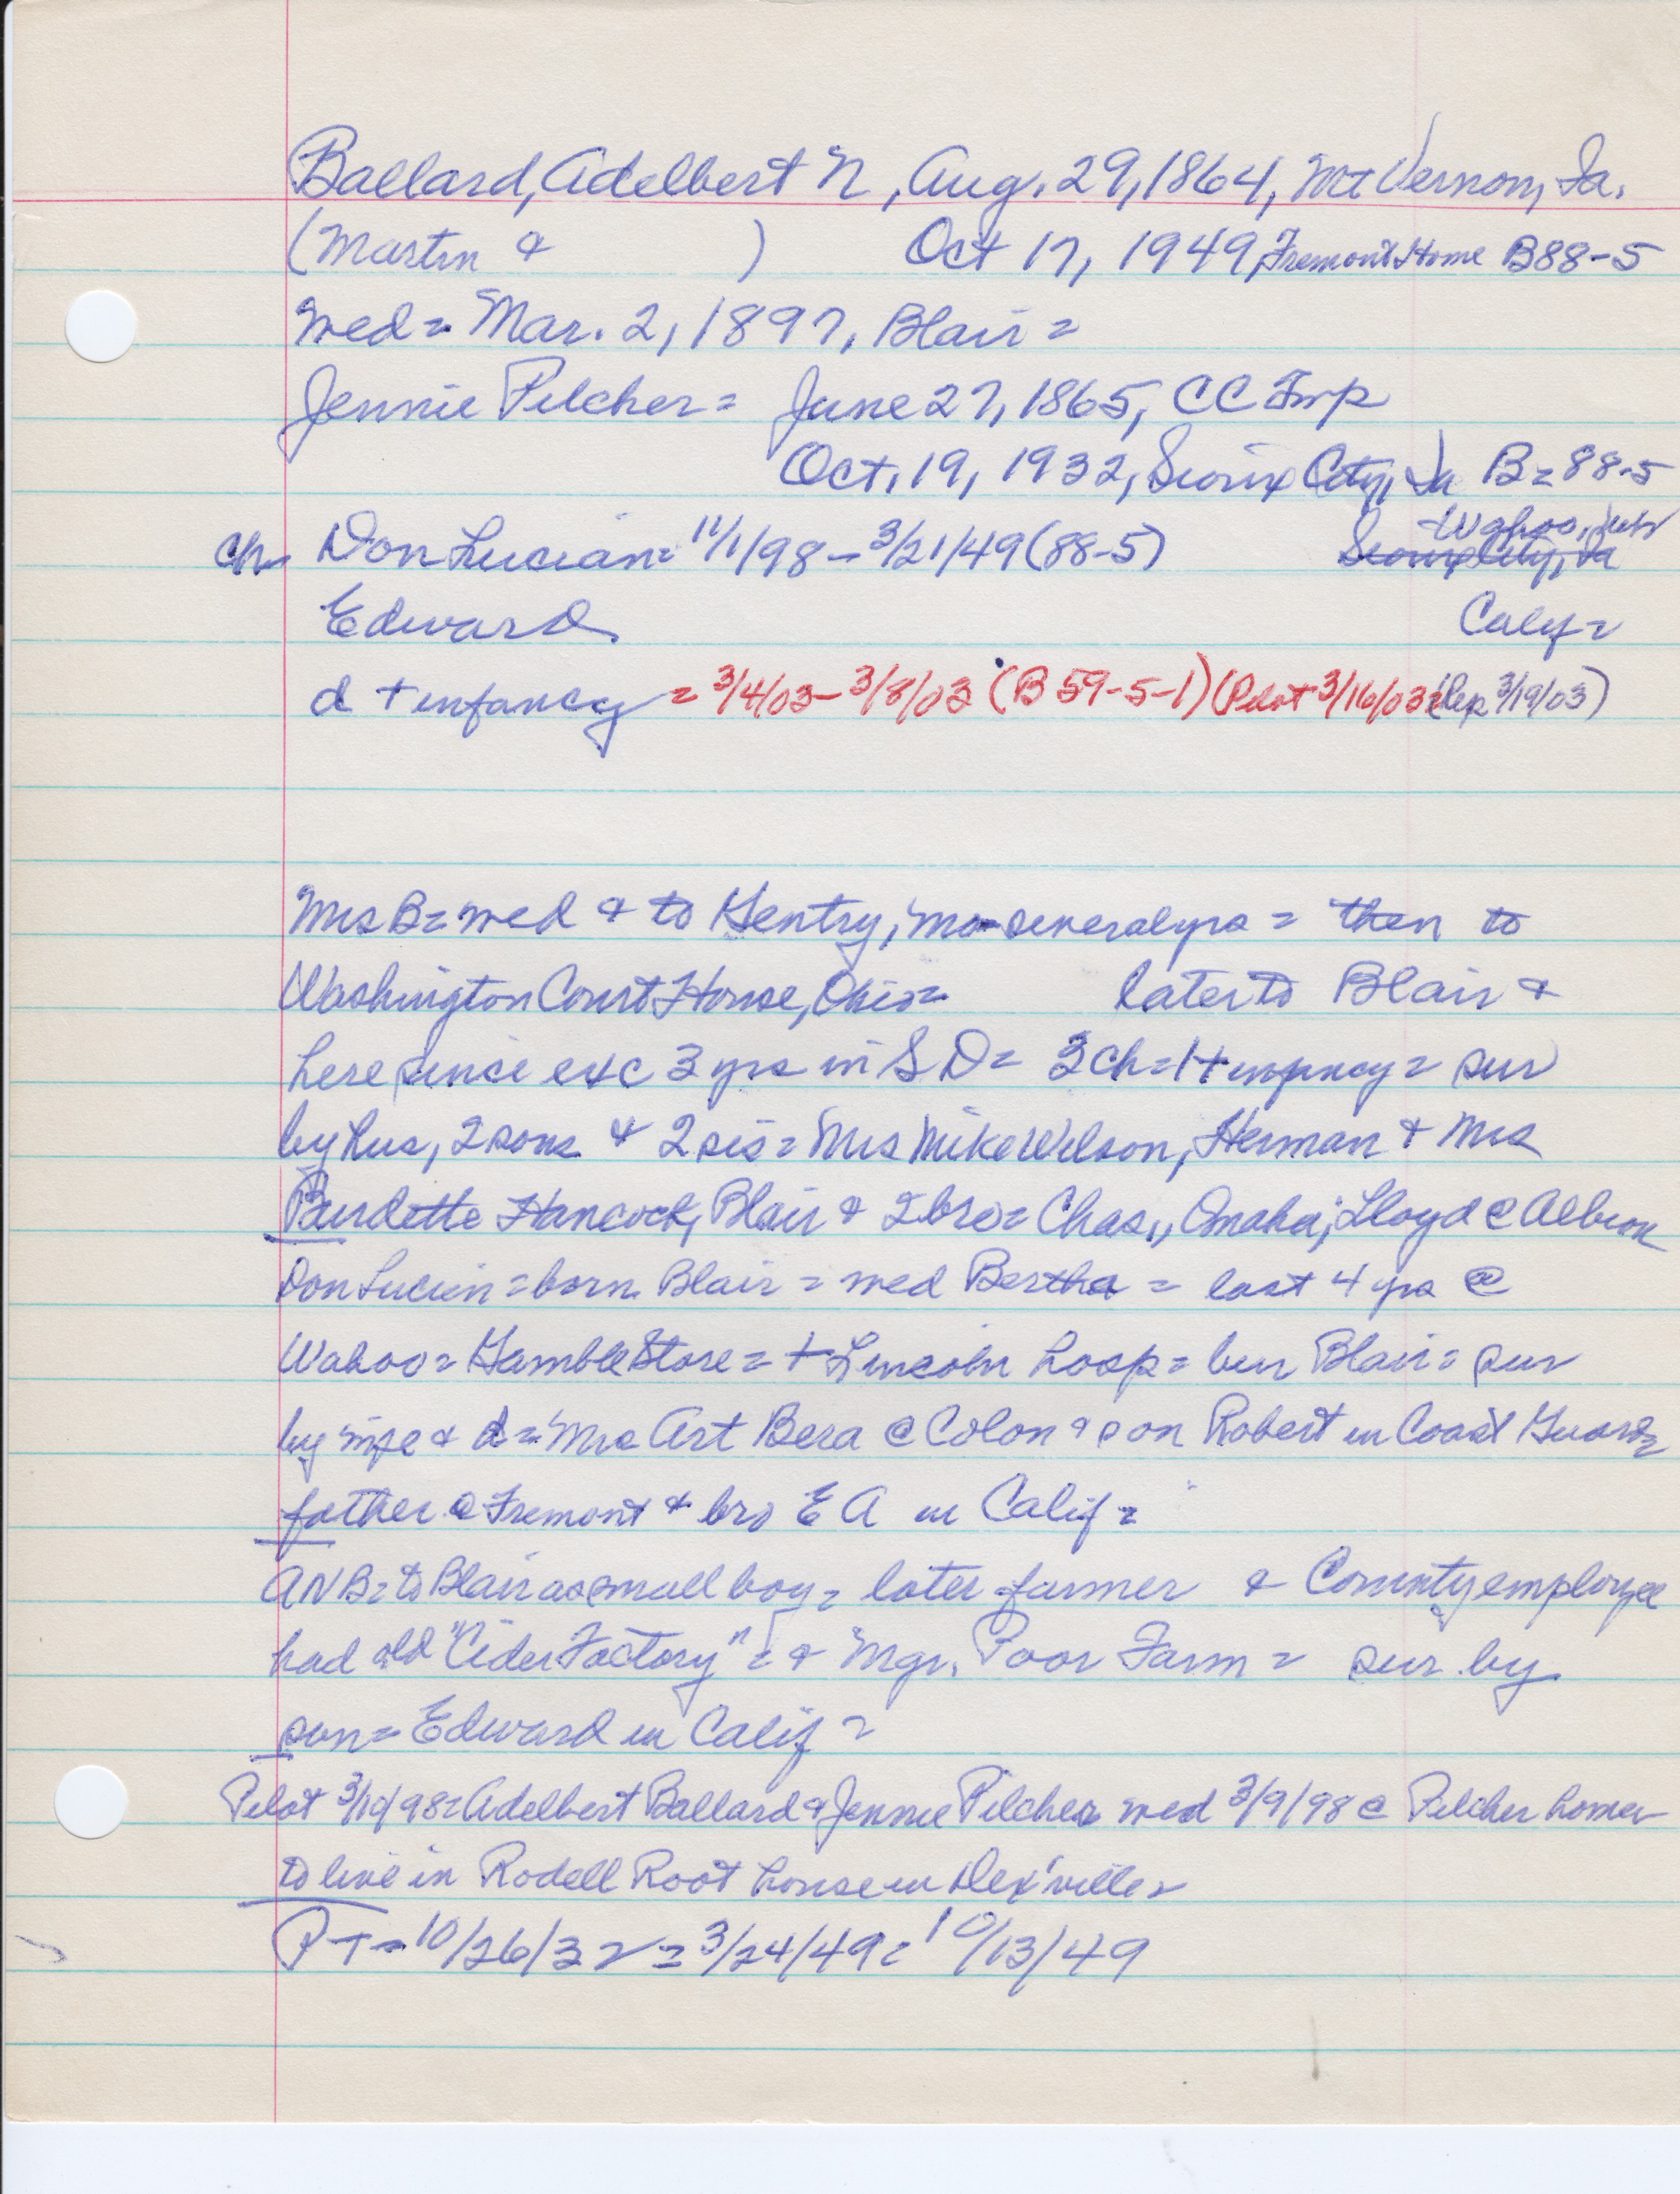 Ballard, Adelbert N, Aug. 29, 1864, Mt Vernon, Ia.
(Martin & ) Oct 17, 1949, Fremont Home B88-5
Wed = Mar. 2, 1897, Blair =
Jennie Pilcher = June 27, 1865, CC Twp
Oct. 19, 1932, Sioux City, Ia B = 88-5
ch = Don Lucian = 11/1/98 - 3/21/49 (88-5) Wahoo, Neb
Sioux City, Ia
Edward Calif =
d + infancy = 3/4/03 - 3/8/03 (B 59-5-1) (Pilot 3/16/03 = (Rep 3/19/03)
Mrs B = wed & to Gentry, Mo several yrs = then to
Washington Court House, Ohio = later to Blair &
here since exc 3 yrs in S D = 3 ch = 1 + infancy = sur
by hus, 2 sons & 2 sis = Mrs Mike Wilson, Herman & Mrs
Burdette Hancock, Blair & 2 bro = Chas., Omaha; Lloyd @ Albion
Don Lucien = born Blair = wed Bertha = last 4 yrs @
Wahoo = Gamble Store = + Lincoln hosp = bur Blair = sur
by wife & d = Mrs Art Bera @ Colon & son Robert in Coast Guard =
father @ Fremont & bro E A in Calif =
ANB = to Blair as small boy = later farmer & County employee
had old "Cider Factory" = & Mgr. Poor Farm = sur by
son = Edward in Calif =
Pilot 3/10/98 = Adelbert Ballard & Jennie Pilcher wed 3/9/98 @ Pilcher home =
to live in Rodell Root house in Dex'ville =
PT = 10/26/32 = 3/24/49 = 10/13/49